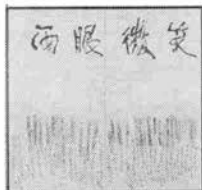 两眼微笑